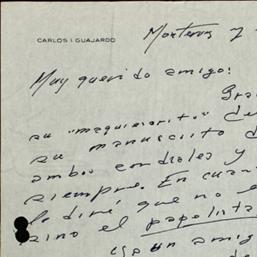 CARLOS I GUAJARDO
Monterrey
Muy querido amigo:
su "maquiescrito" de
su manuscrito d
ambos cordiales y
siempre. En cuan
le diré que no e
sino el papelista
es un amig